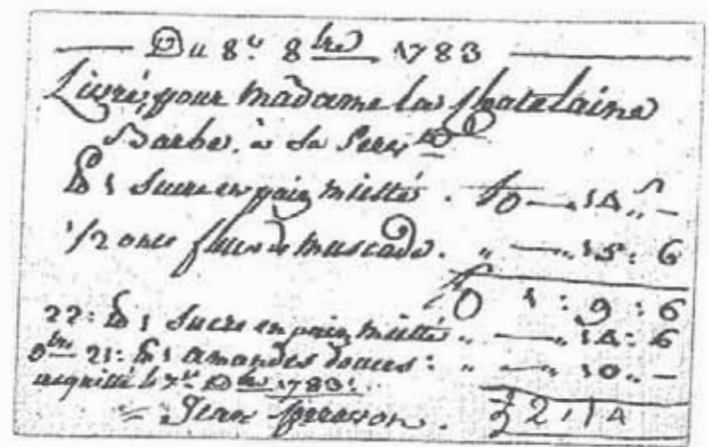 Du 8e 8bre 1783
Livré, pour Madame la Chatelaine
Barbe, à sa Serv.te
lb 1 Sucre en pain mietté . f 0 — 14 „ —
1/2 once fleur de muscade . „ — „ 15 : 6
f 0 1 : 9 : 6
22 : lb 1 Sucre en pain mietté „ — „ 14 : 6
9bre 21 : lb 1 amandes douces : „ — „ 10 „ —
acquitté le 7e Xbre 1783 .
Jean
2 , 14